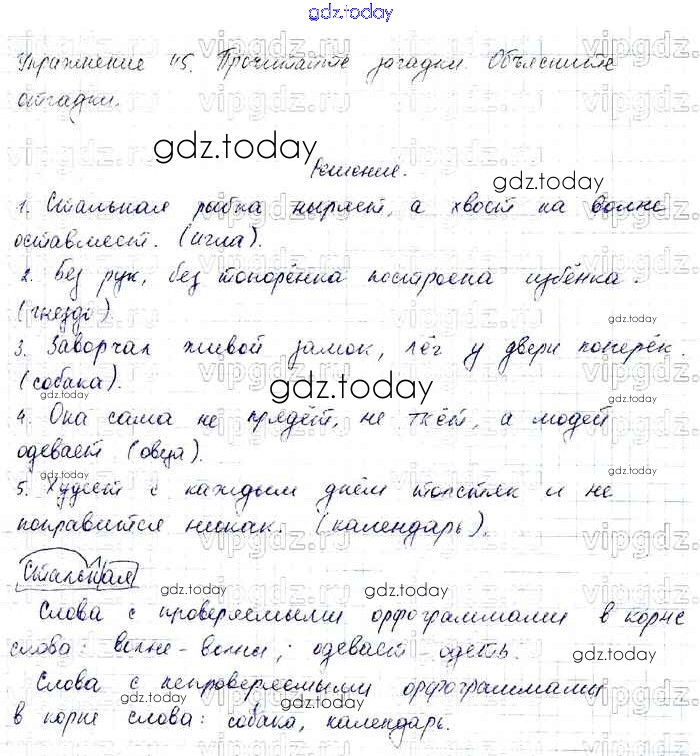 gdz.today
Упражнение 45. Прочитайте загадки. Объясните
отгадки.
gdz.today
Решение.
gdz.today
1. Стальная рыбка ныряет, а хвост на волне
оставляет. (игла).
2. Без рук, без топорёнка построена избёнка.
gdz.today
(гнездо).
3. Заворчал живой замок, лёг у двери поперёк.
gdz.today
(собака).
gdz.today
gdz.today
4. Она сама не прядёт, не ткёт, а людей
одевает (овца).
gdz.today
gdz.today
5. Худеет с каждым днём толстяк и не
поправится никак. (календарь).
gdz.today
Стальная
gdz.today
gdz.today
Слова с проверяемыми орфограммами в корне
слова: волне - волны; одевает - одеть.
gdz.today
gdz.today
Слова с непроверяемыми орфограммами
gdz.today
gdz.today
в корне слова: собака, календарь.